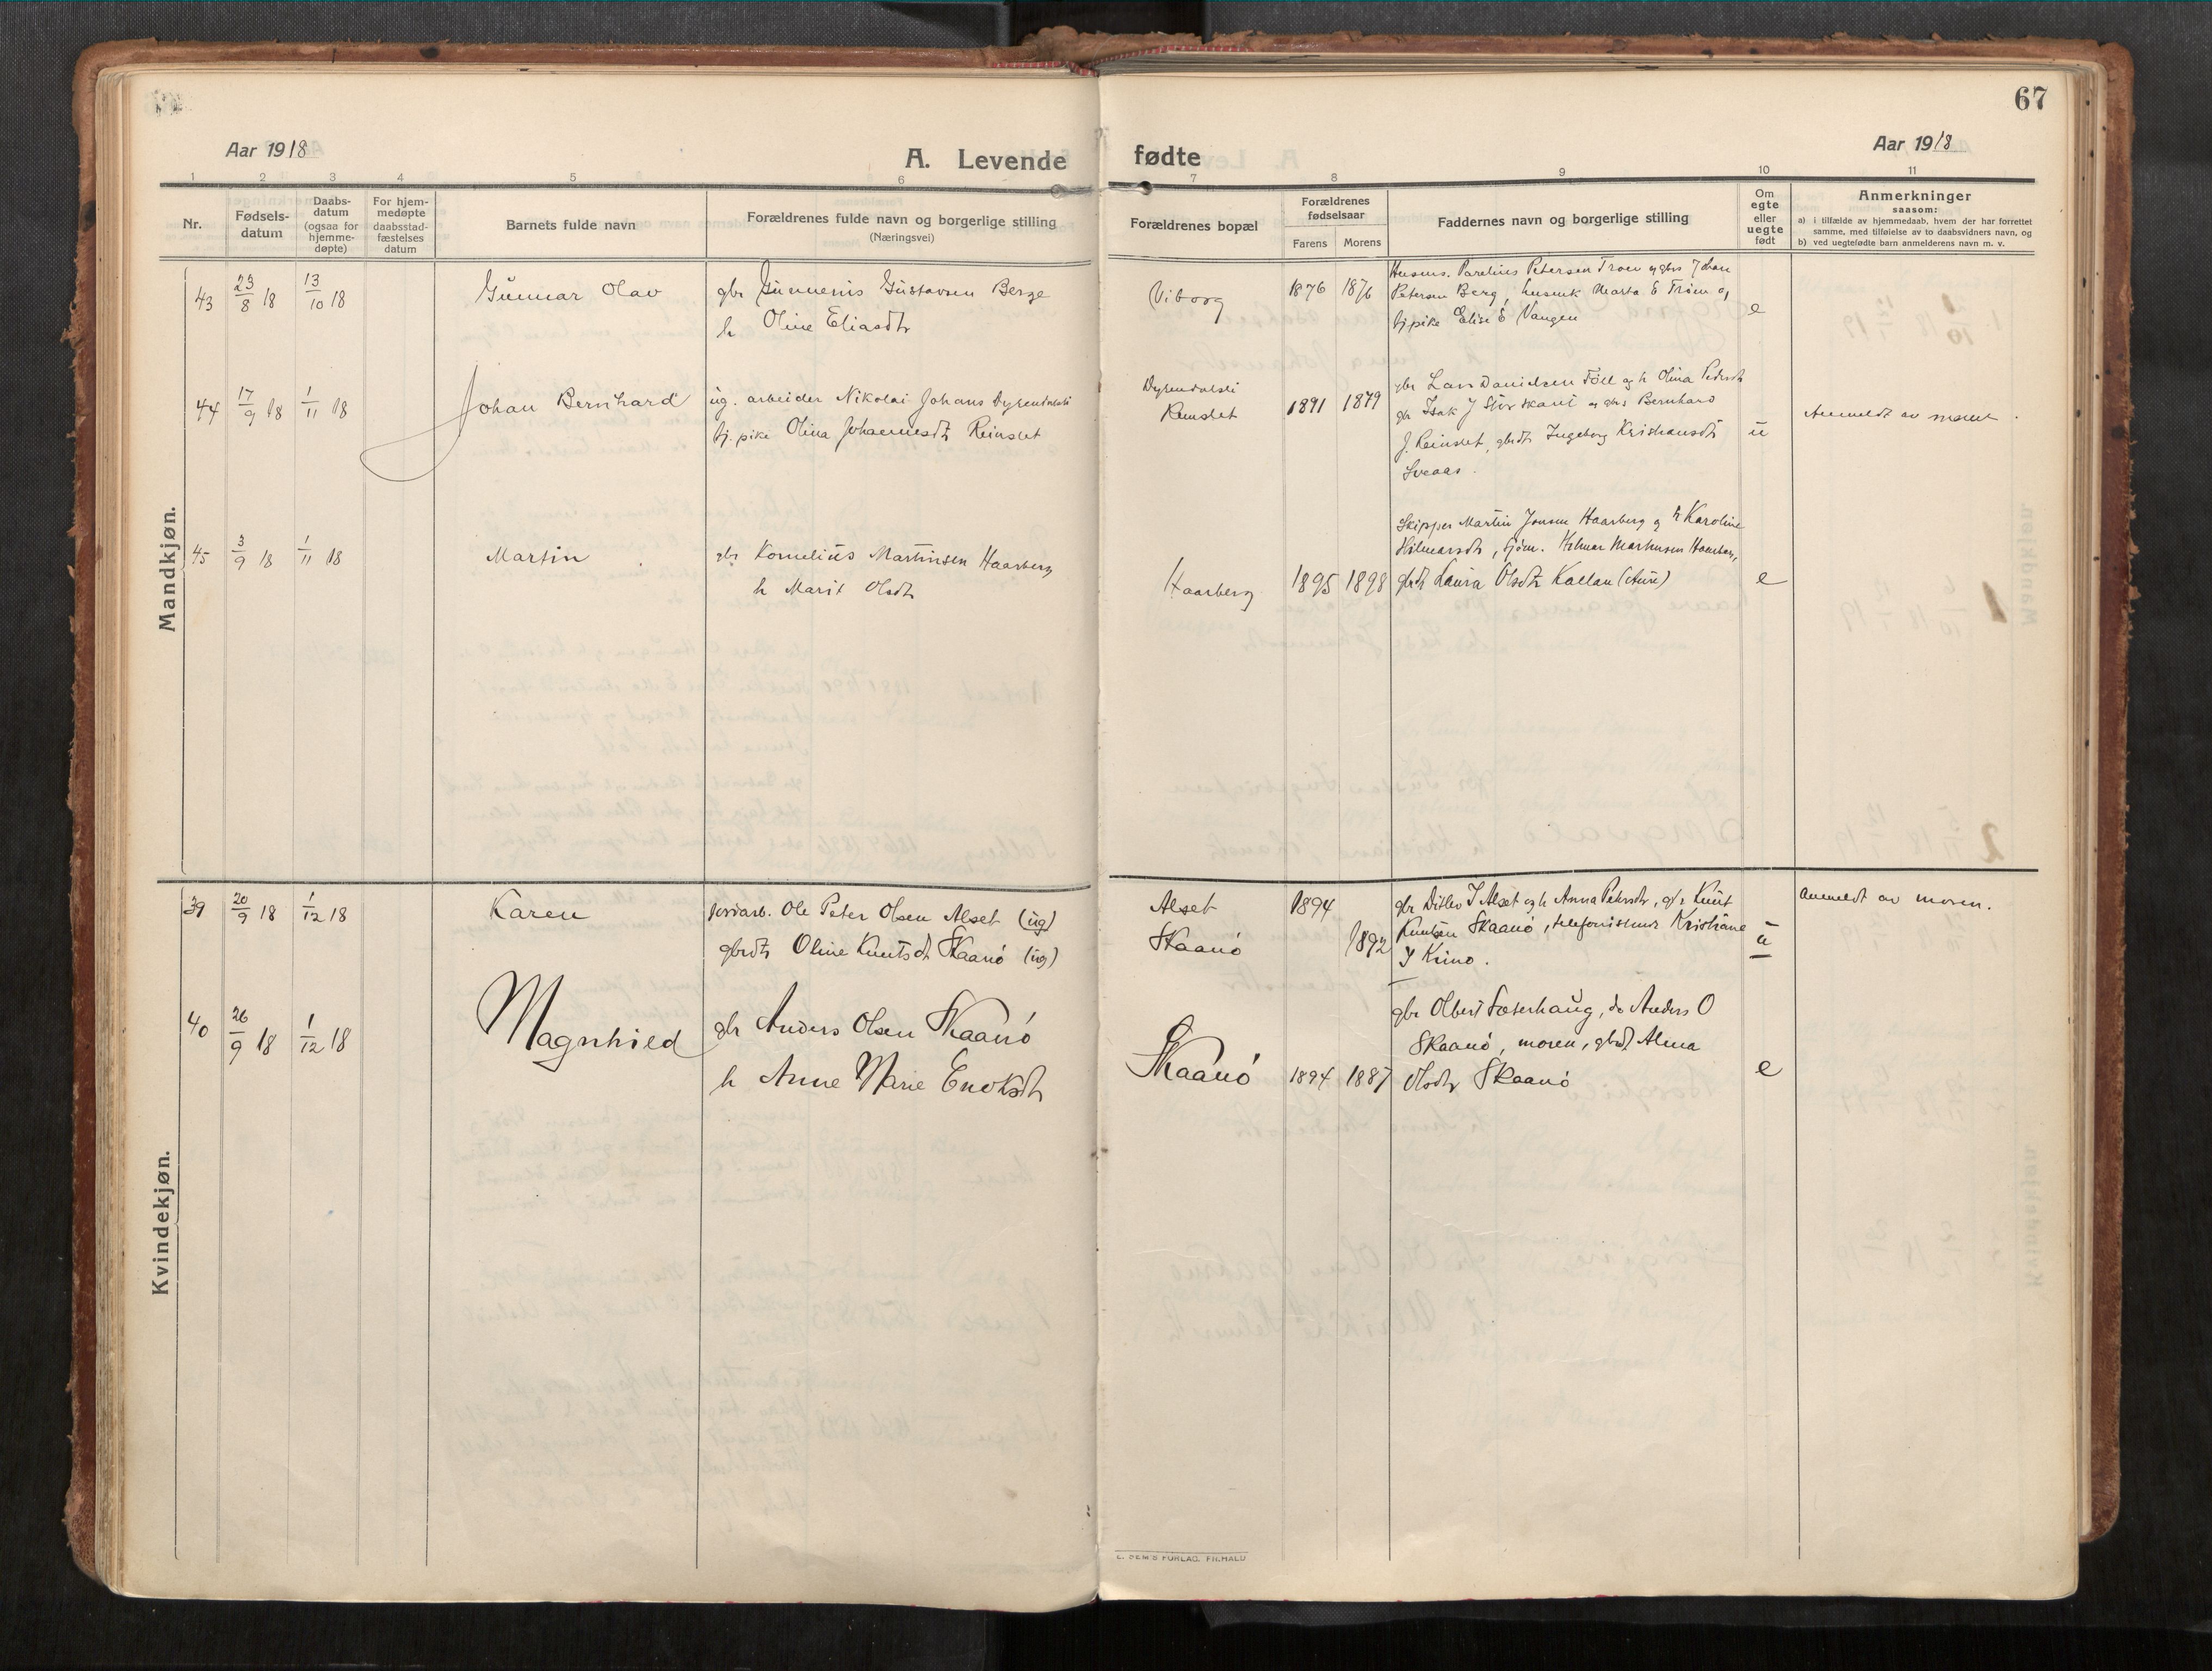 67
Aar 1918
A. Levende fødte
Aar 1918
1 2 3 4 5 6 7 8 9 10 11
Nr.
Fødsels-
datum
Daabs-
datum
(ogsaa for
hjemme-
døpte)
For hjem-
medøpte
daabsstad-
fæstelses
datum
Barnets fulde navn
Forældrenes fulde navn og borgerlige stilling
(Næringsvei)
Forældrenes bopæl
Forældrenes
fødselsaar
Farens Morens
Faddernes navn og borgerlige stilling
Om
egte
eller
uegte
født
Anmerkninger
saasom:
a) i tilfælde av hjemmedaab, hvem der har forrettet
samme, med tilføielse av to daabsvidners navn, og
b) ved uegtefødte barn anmelderens navn m. v.
Mandkjøn.
43 23/8 18 13/10 18 Gunnar Olav
gbr Gunnerius Gustavsen Berge
h Oline Eliasdtr
Viborg 1876 1876
Husm. Parelius Petersen Trøen og gbrs Johan
Petersen Berg, husmk Marta E Trøen og
tj.pike Elise E Vangen
e
44 17/9 18 1/11 18 Johan Bernhard
ug. arbeider Nikolai Johans Dyrendalsli
tj. pike Olina Johannesdtr Reinslet
Dyrendalsli
Reinslet 1891 1879
gbr Lars Danielsen Foll og h Olina Pedersdtr
gbr Isak J Skarli og gbrs Bernhard
J. Reinslet, gbrdtr Ingeborg Kristiansdtr
Sveaas.
u
Anmeldt av moren.
45 3/9 18 1/11 18 Martin
gbr Kornelius Martinsen Haarberg
h Marit Olsdtr
Haarberg 1895 1898
Skipper Martin Jonsen Haarberg og h Karoline
Hilmarsdtr, sjøm. Hilmar Markusen Haarberg,
gbrdtr Laura Olsdtr Kallan (Aure)
e
Kvindekjøn.
39 20/9 18 1/12 18 Karen
jordarb. Ole Peter Olsen Alset (ug)
gbrdtr Oline Knutsdtr Skaanø (ug)
Alset 1894
Skaanø 1892
gbr Ditlev I Alset og h Anna Petersdtr, gbr Knut
Knutsen Skaanø, telefonistinde Kristiane
I Krino.
u
Anmeldt av moren.
40 26/9 18 1/12 18 Magnhild
gbr Anders Olsen Skaanø
h Anne Marie Enoksdtr
Skaanø 1894 1887
gbr Olbert Sæterhaug, do Anders O
Skaanø, moren, gbrdt Alma
Olsdtr Skaanø
e
E. SEM'S FORLAG. FR.HALD